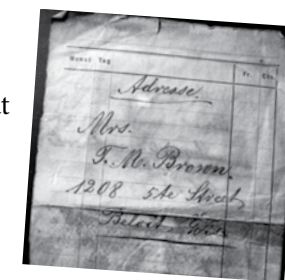 t
Monat Tag Fr. Cts.
Adresse.
Mrs.
F. M. Brown.
1208 5te Street
Beloit, Wis.